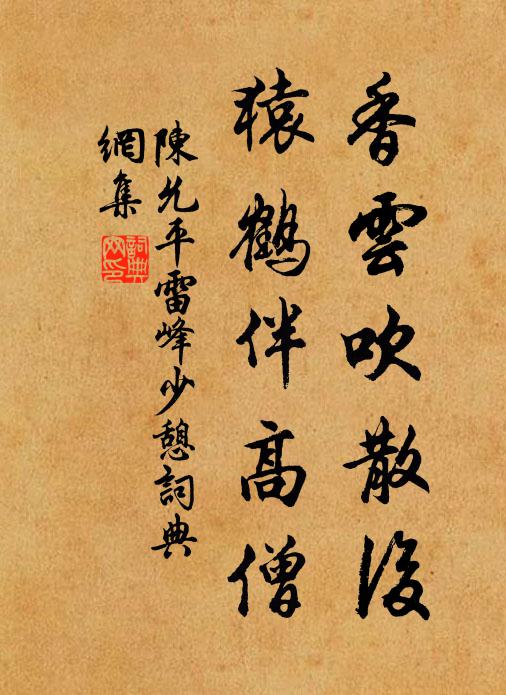 香雲吹散後
猿鶴伴高僧
陳允平雷峰少憩詞典
網集
詞典
网印